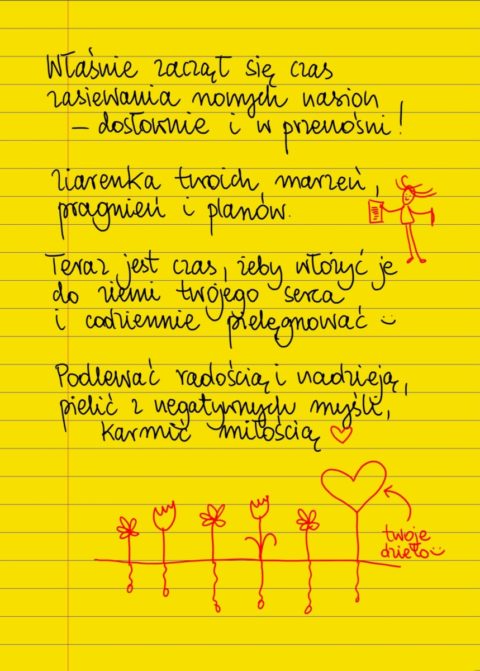 Właśnie zaczął się czas
zasiewania nowych nasion
– dosłownie i w przenośni!
Ziarenka twoich marzeń,
pragnień i planów.
Teraz jest czas, żeby włożyć je
do ziemi twojego serca
i codziennie pielęgnować :)
Podlewać radością i nadzieją,
pielić z negatywnych myśli,
karmić miłością ♡
twoje
dzieło :)